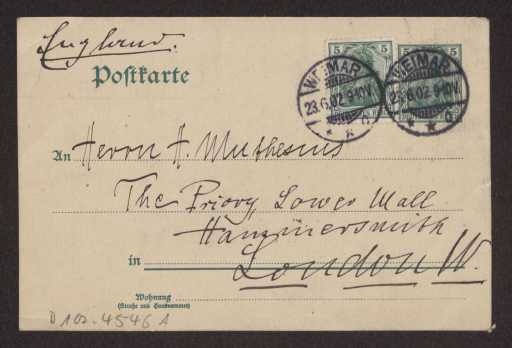 England.
Postkarte
5 5 5 5
WEIMAR
23.6.02.9-10V.
WEIMAR
23.6.02.9-10V.
An Herrn H. Muthesius
The Priory Lower Mall
Hammersmith
in London W.
Wohnung
(Straße und Hausnummer)
D 102-4546 A